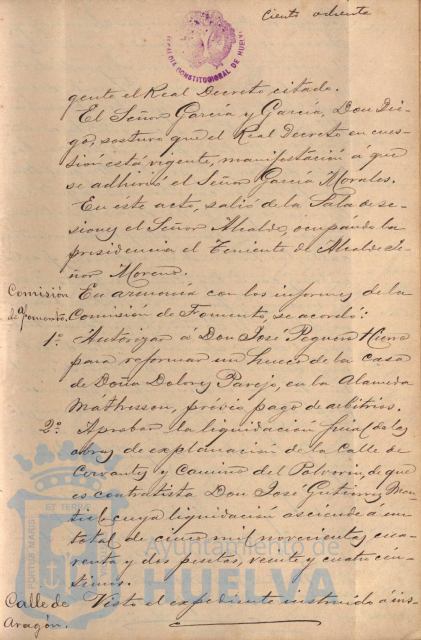 Ciento ochenta
ALCALDIA CONSTITUCIONAL DE HUELVA
gente el Real Decreto citado.
El Señor García y García, Don Die-
go, sostuvo que el Real Decreto en cues-
tión está vigente, manifestación á que
se adhirió el Señor García Morales.
En este acto, salió de la Sala de se-
siones el Señor Alcalde, ocupando la
presidencia el Teniente de Alcalde Se-
ñor Moreno.
Comisión de Fomento.
En armonía con los informes de la
Comisión de Fomento, se acordó:
1º Autorizar á Don José Peguero Hierro
para reformar un hueco de la casa
de Doña Dolores Parejo, en la Alameda
Máthesson, prévio pago de arbitrios.
2º Aprobar la liquidación final de las
obras de explanación de la Calle de
Cervantes y Camino del Polvorin, de que
es contratista Don José Gutierrez Man-
tilla, cuya liquidación asciende á un
total de cinco mil novecientas cua-
renta y dos pesetas, veinte y cuatro cén-
timos.
Calle de Aragón.
Visto el expediente instruido á ins-
PORTUS MARIS ET TERRAE
Ayuntamiento de
HUELVA